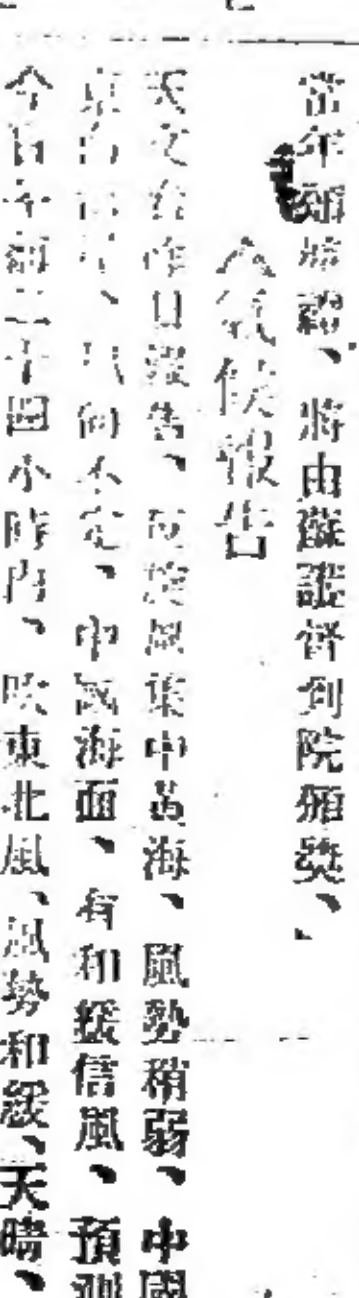 當年頒婦嬰、將由蘇護督到院頒獎、
氣候報告
天文台昨日報告、反旋風集中黃海、風勢稍弱、中國
東南、風向不定、中國海面、有和緩信風、預測
今日午刻二十四小時內、吹東北風、風勢和緩、天晴、